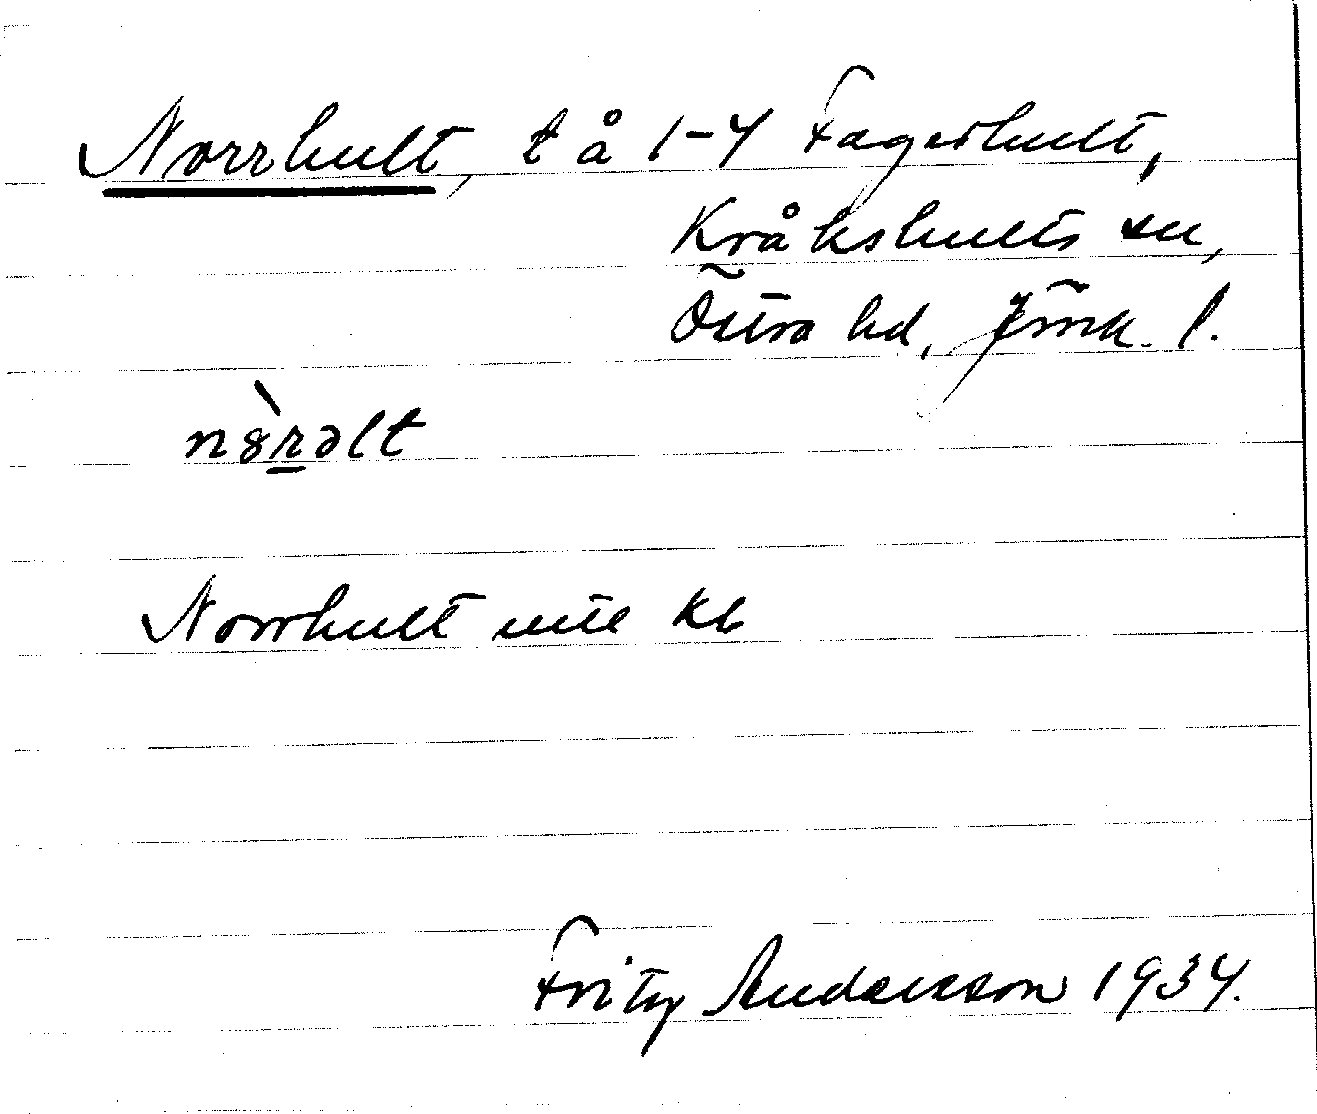 Norrhult, t å 1-4 Fagerhult,
Kråkshults sn,
Östra hd, Jönk. l.
n8̀rəlt
Norrhult uttl kb
Fritz Andersson 1934.